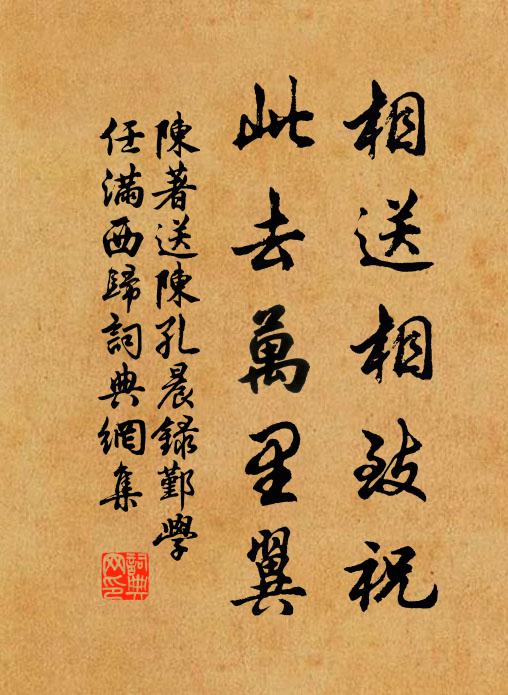 相送相致祝
此去萬里翼
陳著送陳孔晨錄鄞學
任滿西歸詞典網集
詞典
网印